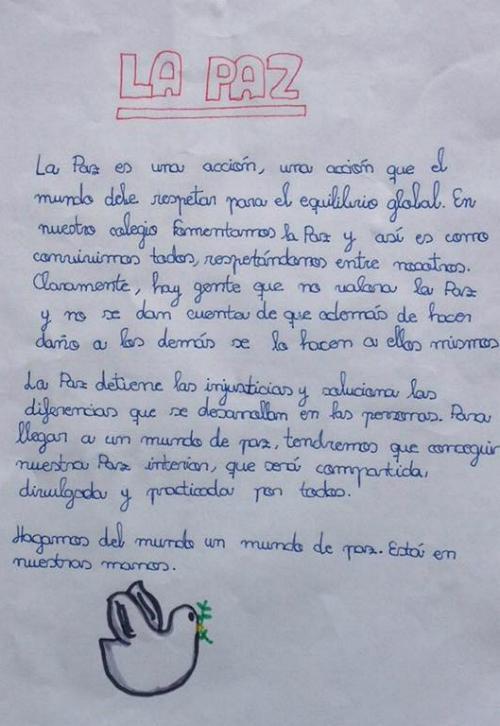 LA PAZ
La Paz es una acción, una acción que el
mundo debe respetar para el equilibrio global. En
nuestro colegio fomentamos la Paz y así es como
convivimos todos, respetándonos entre nosotros.
Claramente, hay gente que no valora la Paz
y no se dan cuenta de que además de hacer
daño a los demás se lo hacen a ellos mismos
La Paz detiene las injusticias y soluciona las
diferencias que se desarrollan en las personas. Para
llegar a un mundo de paz, tendremos que conseguir
nuestra Paz interior, que será compartida,
divulgada y practicada por todos.
Hagamos del mundo un mundo de paz. Está en
nuestras manos.